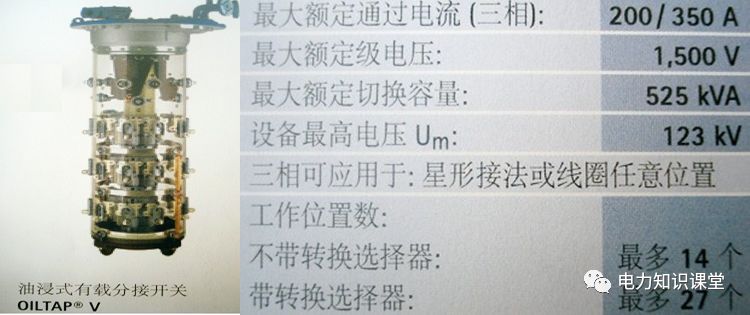 最大额定通过电流 (三相): 200 / 350 A
最大额定级电压: 1,500 V
最大额定切换容量: 525 kVA
设备最高电压 Um: 123 kV
三相可应用于: 星形接法或线圈任意位置
工作位置数:
不带转换选择器: 最多 14 个
带转换选择器: 最多 27 个
油浸式有载分接开关
OILTAP® V
电力知识课堂